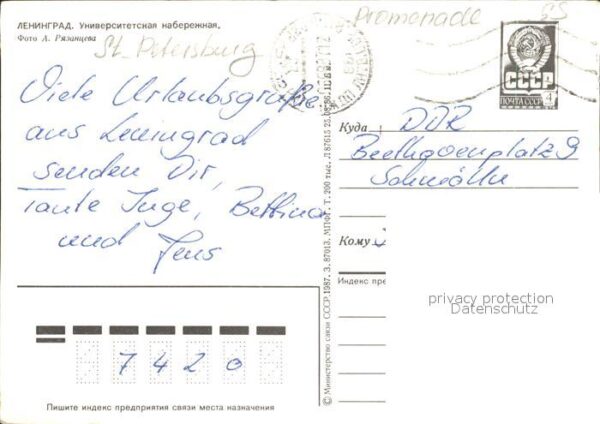 ЛЕНИНГРАД. Университетская набережная,
Фото А. Рязанцева
St. Petersburg
Promenade
SS
Viele Urlaubsgrüße
aus Leningrad
senden Dir,
Tante Inge, Bettina
und Jens
СССР
ПОЧТА СССР
4
Куда
DDR
Beethovenplatz 9
Schmölln
Кому
Индекс пре
privacy protection
Datenschutz
© Министерство связи СССР. 1987. З. 87013. МПФГ. Т. 200 тыс. Л 87615 25.08.86. Ц. 6 к.
7420
Пишите индекс предприятия связи места назначения